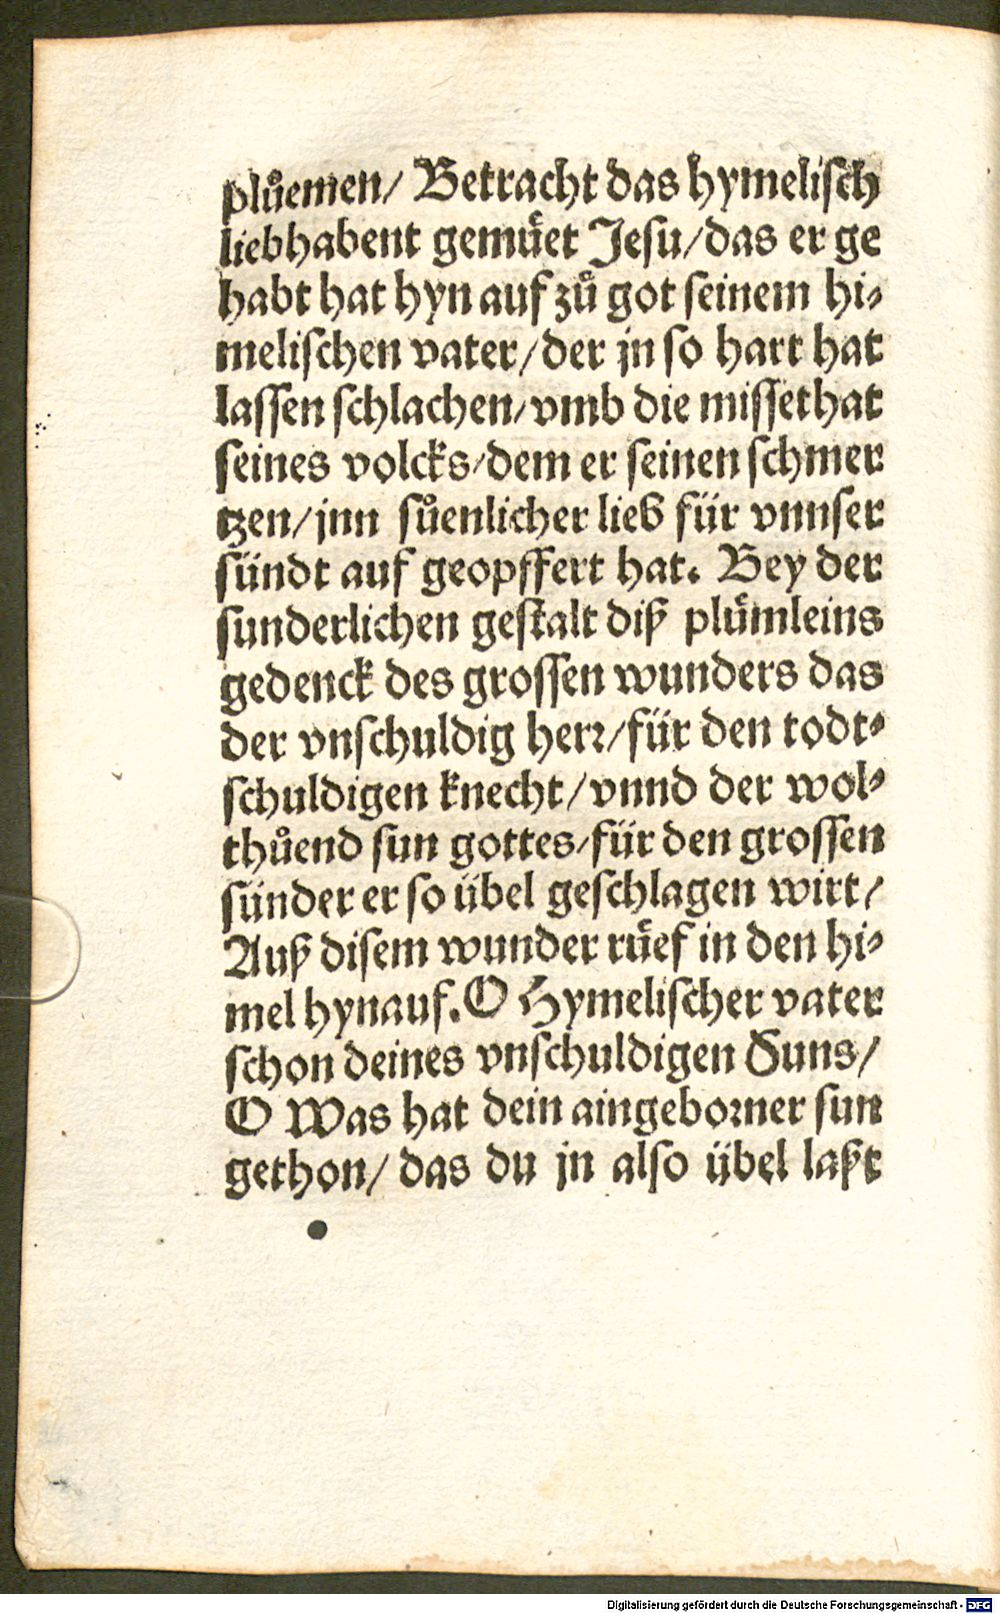 pluͦemen/ Betracht das hymelisch
liebhabent gemuͤet Jesu/das er ge
habt hat hyn auf zuͦ got seinem hi⸗
melischen vater/der jn so hart hat
lassen schlachen/vmb die missethat
seines volcks/dem er seinen schmer
tzen/jnn suͦenlicher lieb für vnnser
sündt auf geopffert hat. Bey der
sunderlichen gestalt diß pluͤmleins
gedenck des grossen wunders das
der vnschuldig herꝛ/für den todt⸗
schuldigen knecht/vnnd der wol⸗
thuͦend sun gottes/für den grossen
sünder er so übel geschlagen wirt/
Auß disem wunder ruͤef in den hi⸗
mel hynauf. O Hymelischer vater
schon deines vnschuldigen Suns/
O Was hat dein aingeboꝛner sun
gethon/ das du jn also übel laßt
Digitalisierung gefördert durch die Deutsche Forschungsgemeinschaft - DFG